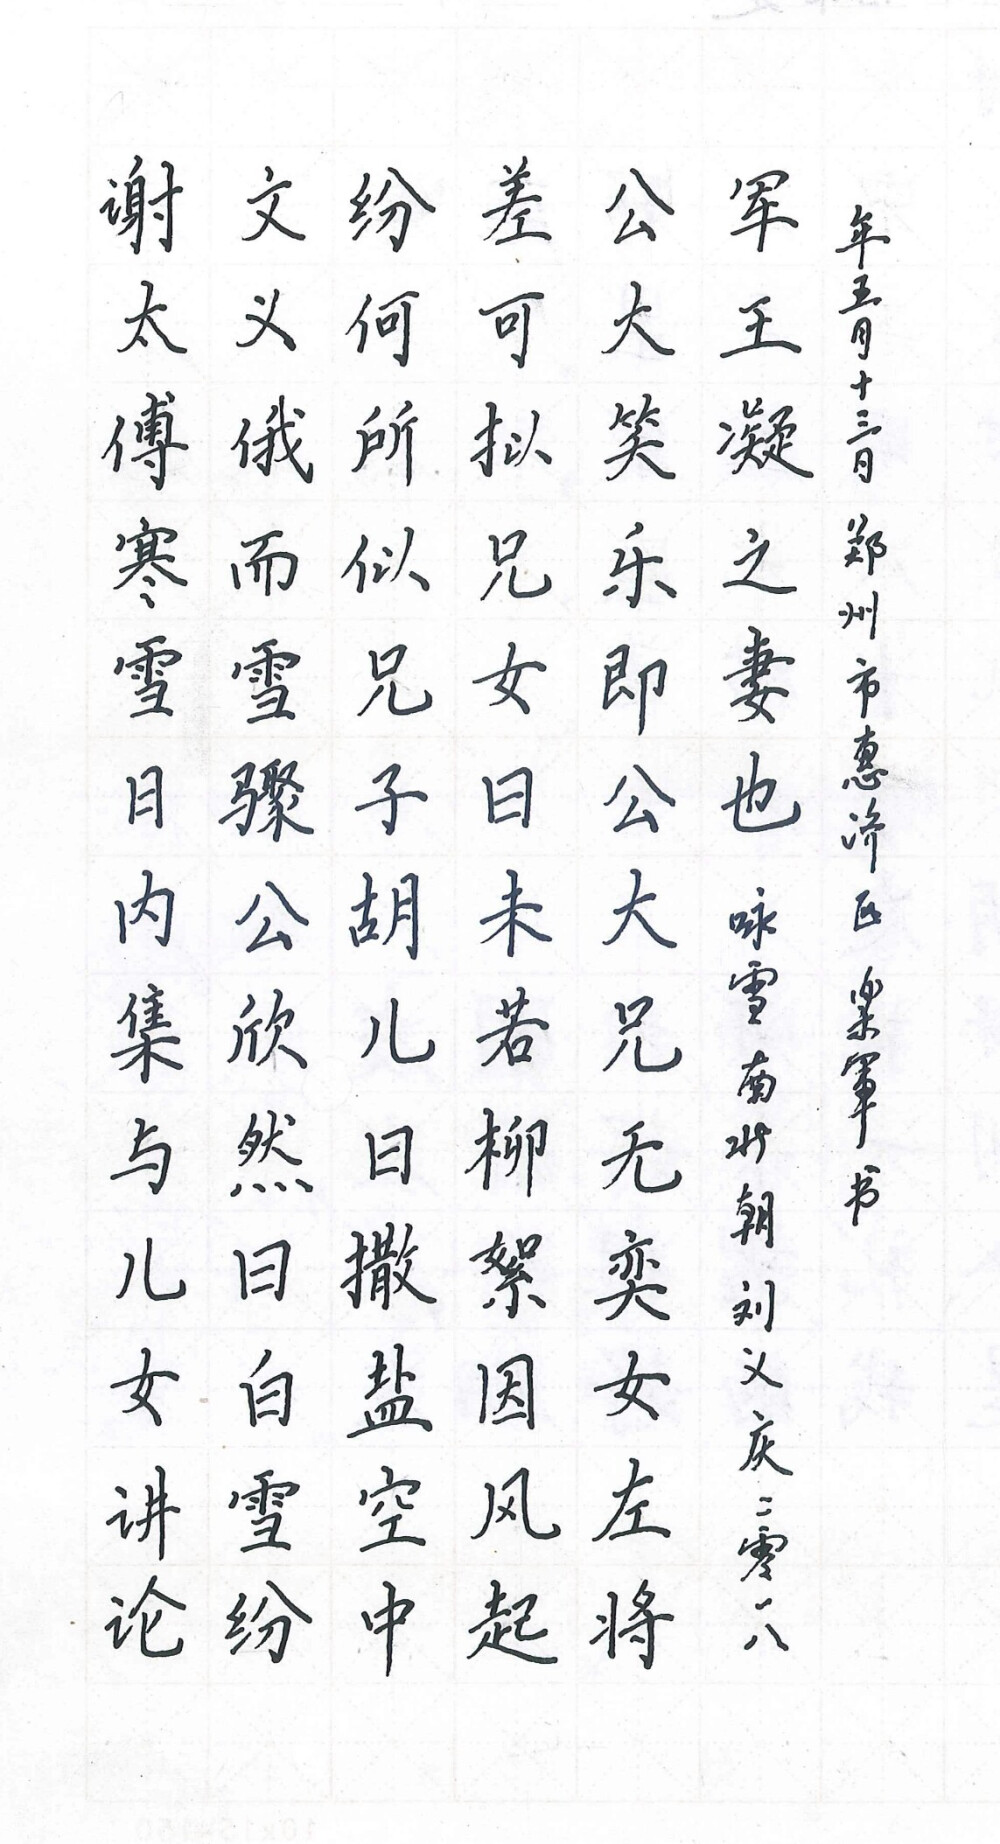 谢太傅寒雪日内集与儿女讲论
文义俄而雪骤公欣然曰白雪纷
纷何所似兄子胡儿曰撒盐空中
差可拟兄女曰未若柳絮因风起
公大笑乐即公大兄无奕女左将
军王凝之妻也 咏雪南北朝刘义庆二零一八
年五月十三日 郑州市惠济区 军书